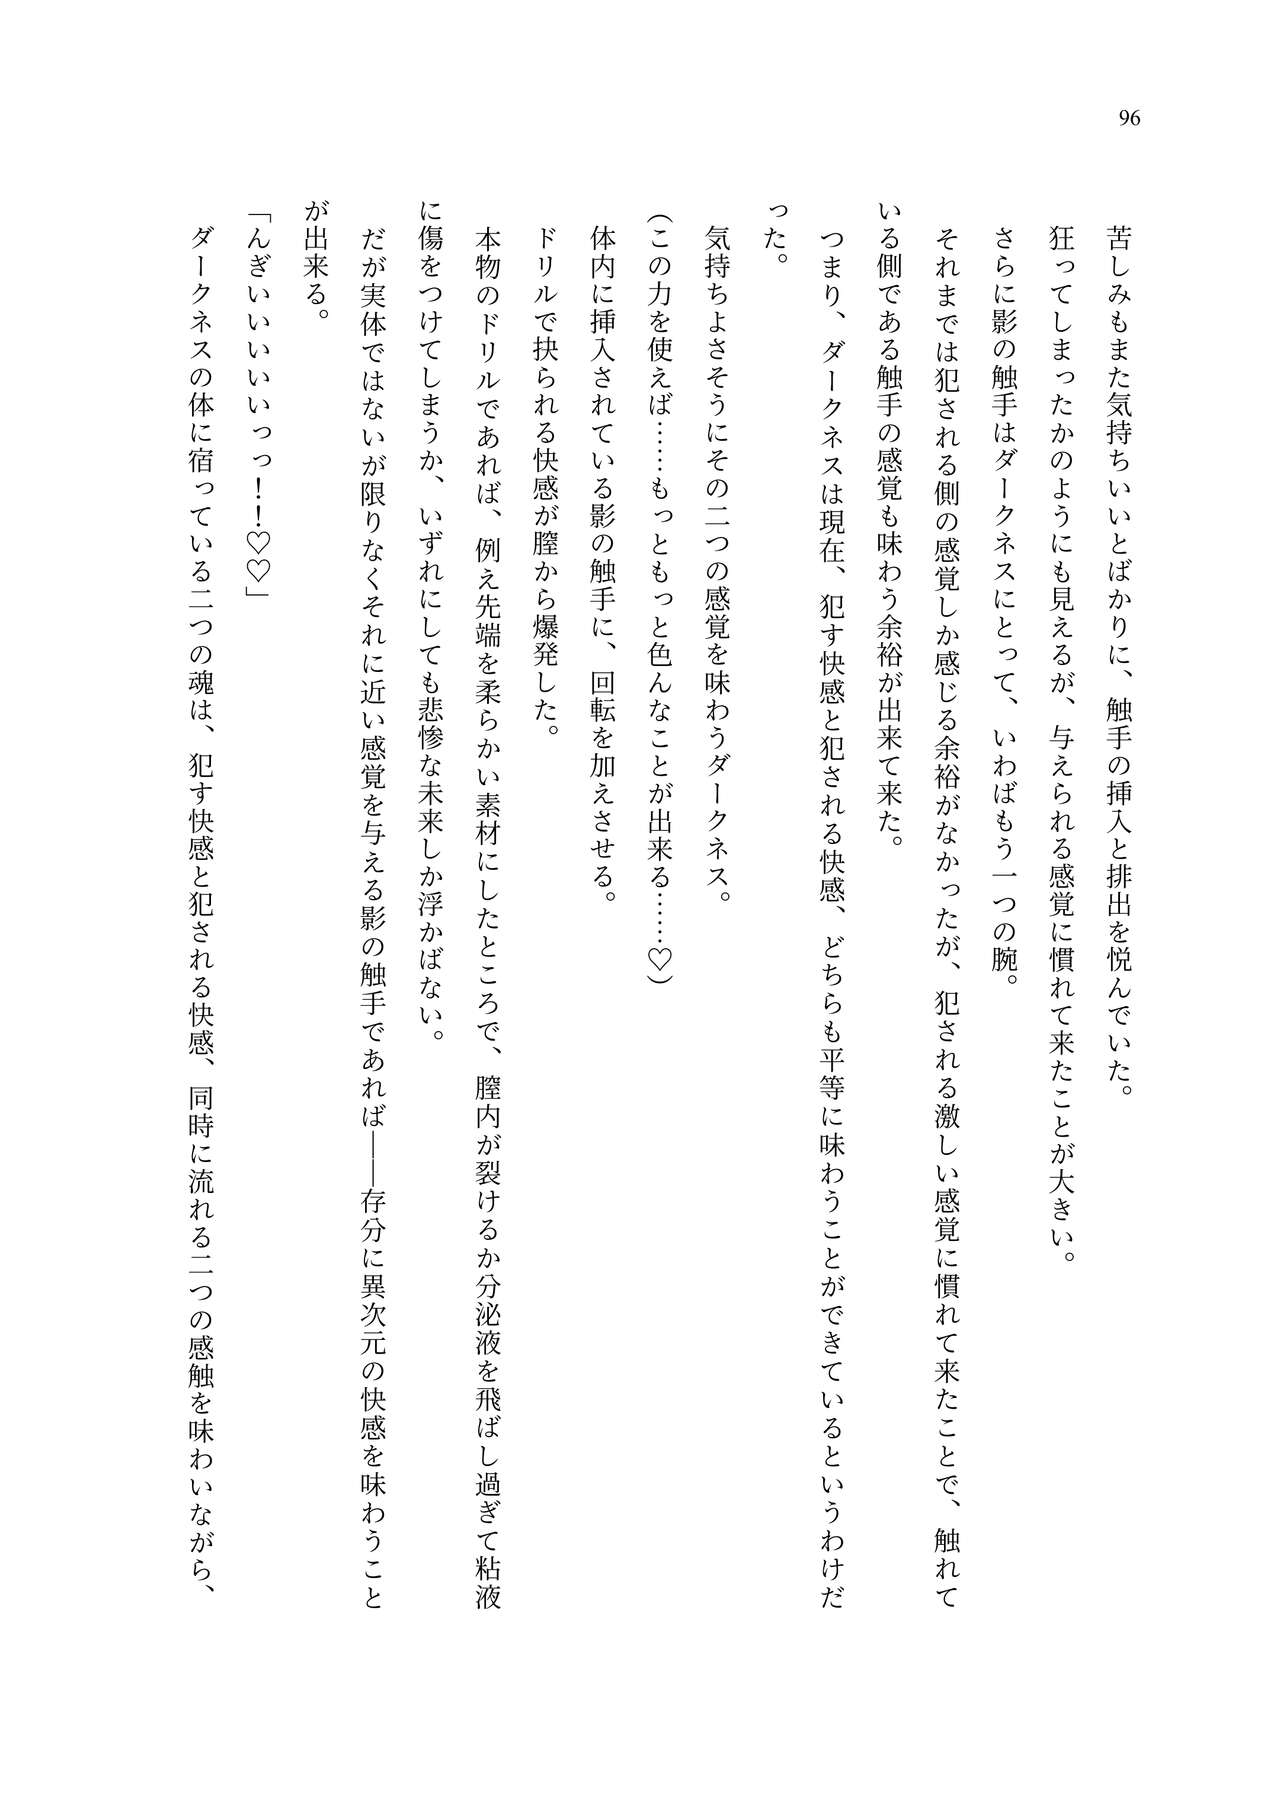 96
苦しみもまた気持ちいいとばかりに、触手の挿入と排出を悦んでいた。
狂ってしまったかのようにも見えるが、与えられる感覚に慣れて来たことが大きい。
さらに影の触手はダークネスにとって、いわばもう一つの腕。
それまでは犯される側の感覚しか感じる余裕がなかったが、犯される激しい感覚に慣れて来たことで、触れて
いる側である触手の感覚も味わう余裕が出来て来た。
つまり、ダークネスは現在、犯す快感と犯される快感、どちらも平等に味わうことができているというわけだ
った。
気持ちよさそうにその二つの感覚を味わうダークネス。
（この力を使えば……もっともっと色んなことが出来る……♡）
体内に挿入されている影の触手に、回転を加えさせる。
ドリルで抉られる快感が膣から爆発した。
本物のドリルであれば、例え先端を柔らかい素材にしたところで、膣内が裂けるか分泌液を飛ばし過ぎて粘液
に傷をつけてしまうか、いずれにしても悲惨な未来しか浮かばない。
だが実体ではないが限りなくそれに近い感覚を与える影の触手であれば――存分に異次元の快感を味わうこと
が出来る。
「んぎいいいいいっっ！！♡♡」
ダークネスの体に宿っている二つの魂は、犯す快感と犯される快感、同時に流れる二つの感触を味わいながら、